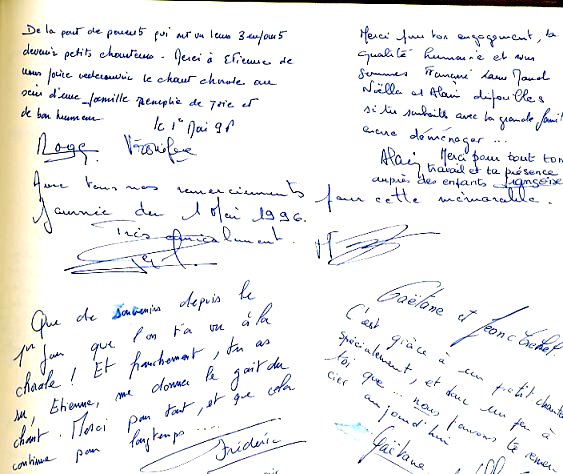 De la part de parents qui ont vu leurs 3 enfants
devenir petits chanteurs. Merci à Etienne de
nous faire redécouvrir le chant chorale au
sein d'une famille remplie de joie et
de bon humeur
le 1er Mai 96
Roger Véronique
Merci pour ton engagement, ta
qualité humaine et nous
sommes
Noëlla et Alain
si tu souhaites avec la grande famille
encore déménager ...
Alain Merci pour tout ton
travail et ta présence
auprès des enfants Françoise
Avec tous nos remerciements pour cette mémorable
journée du 1 Mai 1996.
Très amicalement.
Que de souvenirs depuis le
1er jour que l'on t'a vu à la
chorale ! Et franchement, tu as
su, Etienne, me donner le goût du
chant. Merci pour tout, et que cela
continue pour longtemps ....
Frédéric
Gaëtane et
C'est grâce à un petit chanteur
spécialement, et donc un peu à
toi que ... nous pouvons te
ici aujourd'hui
Gaëtane